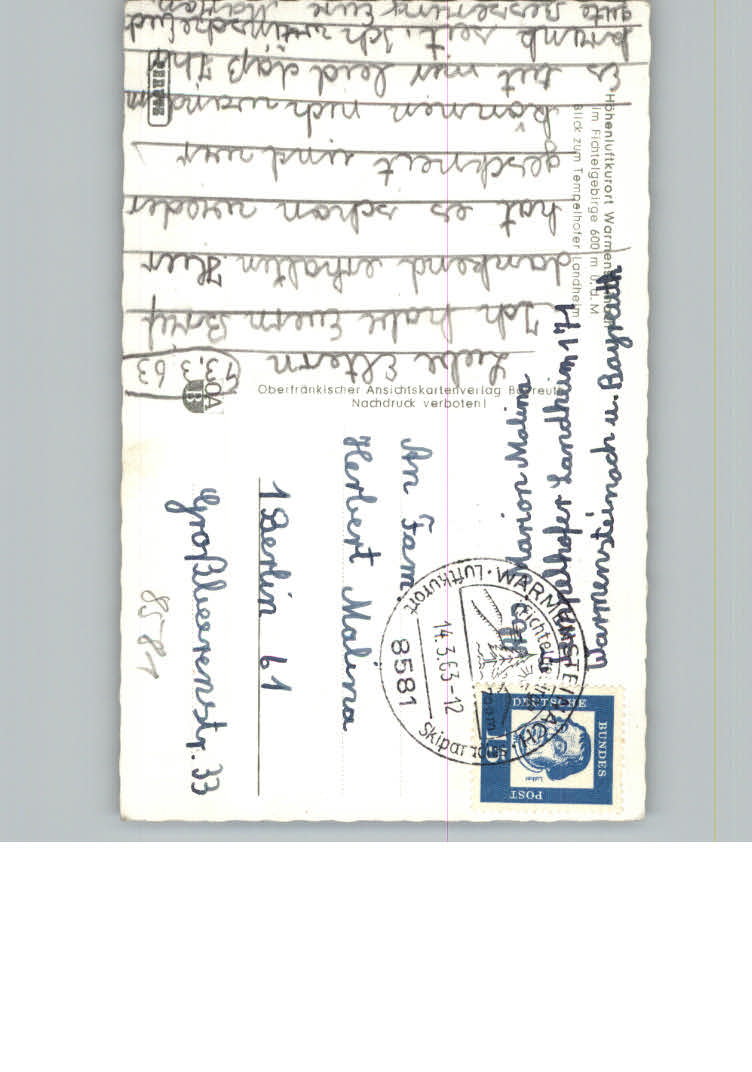 13.3.63
Liebe Eltern
Ich habe Euern Brief
dankend erhalten. Hier
hat es schon wieder
geschneit und wir
können nich
Es tut mir leid daß Ihr
krank seit. Ich wünsche Euch
gute besserung Eure Marion
Höhenluftkurort Warmensteinach
im Fichtelgebirge 600 m ü. d. M.
Blick zum Tempelhofer Landheim
PERUTZ
Oberfränkischer Ansichtskartenverlag Bayreuth
Nachdruck verboten!
OA
B
Marion Malina
Tempelhofer Landheim 171
Warmensteinach u. Bayreuth
An Fam.
Herbert Malina
1 Berlin 61
Großbeerenstr. 33
8581
WARMENSTEINACH
Luftkurort
14.3.63-12
8581
DEUTSCHE
BUNDES
POST
15
Luther